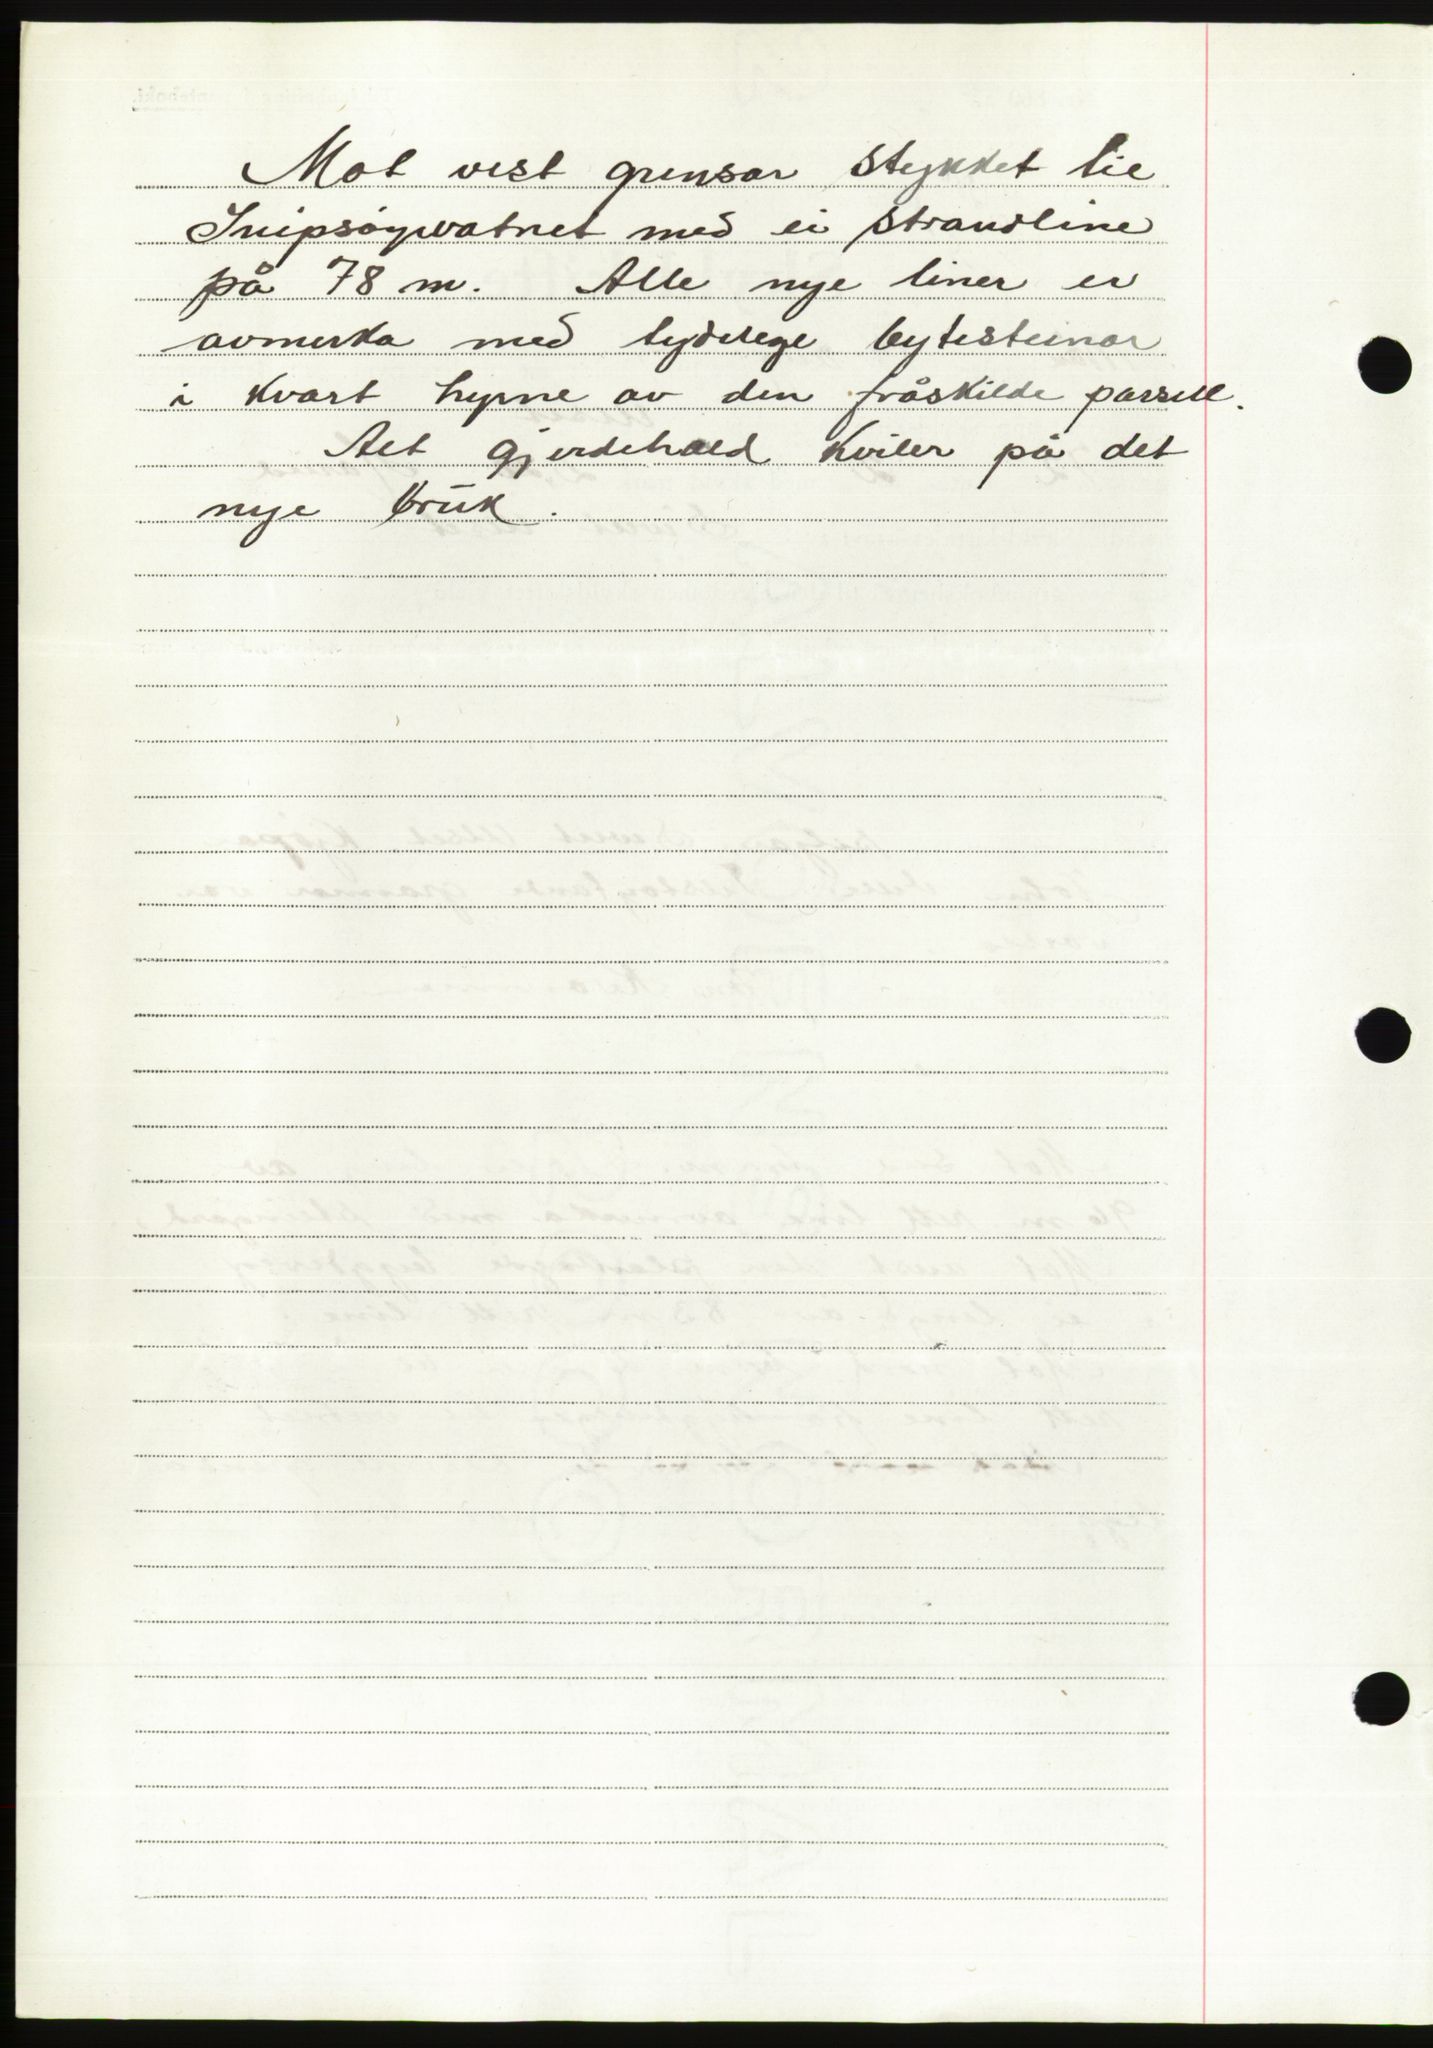 Mot vest grensar stykket til
Snipsøyrvatnet med ei strandline
på 78 m. Alle nye liner er
avmerka med tydelege bytesteinar
i kvart hyrne av den fråskilde parsell.
Alt gjerdehald kviler på det
nye brùk.